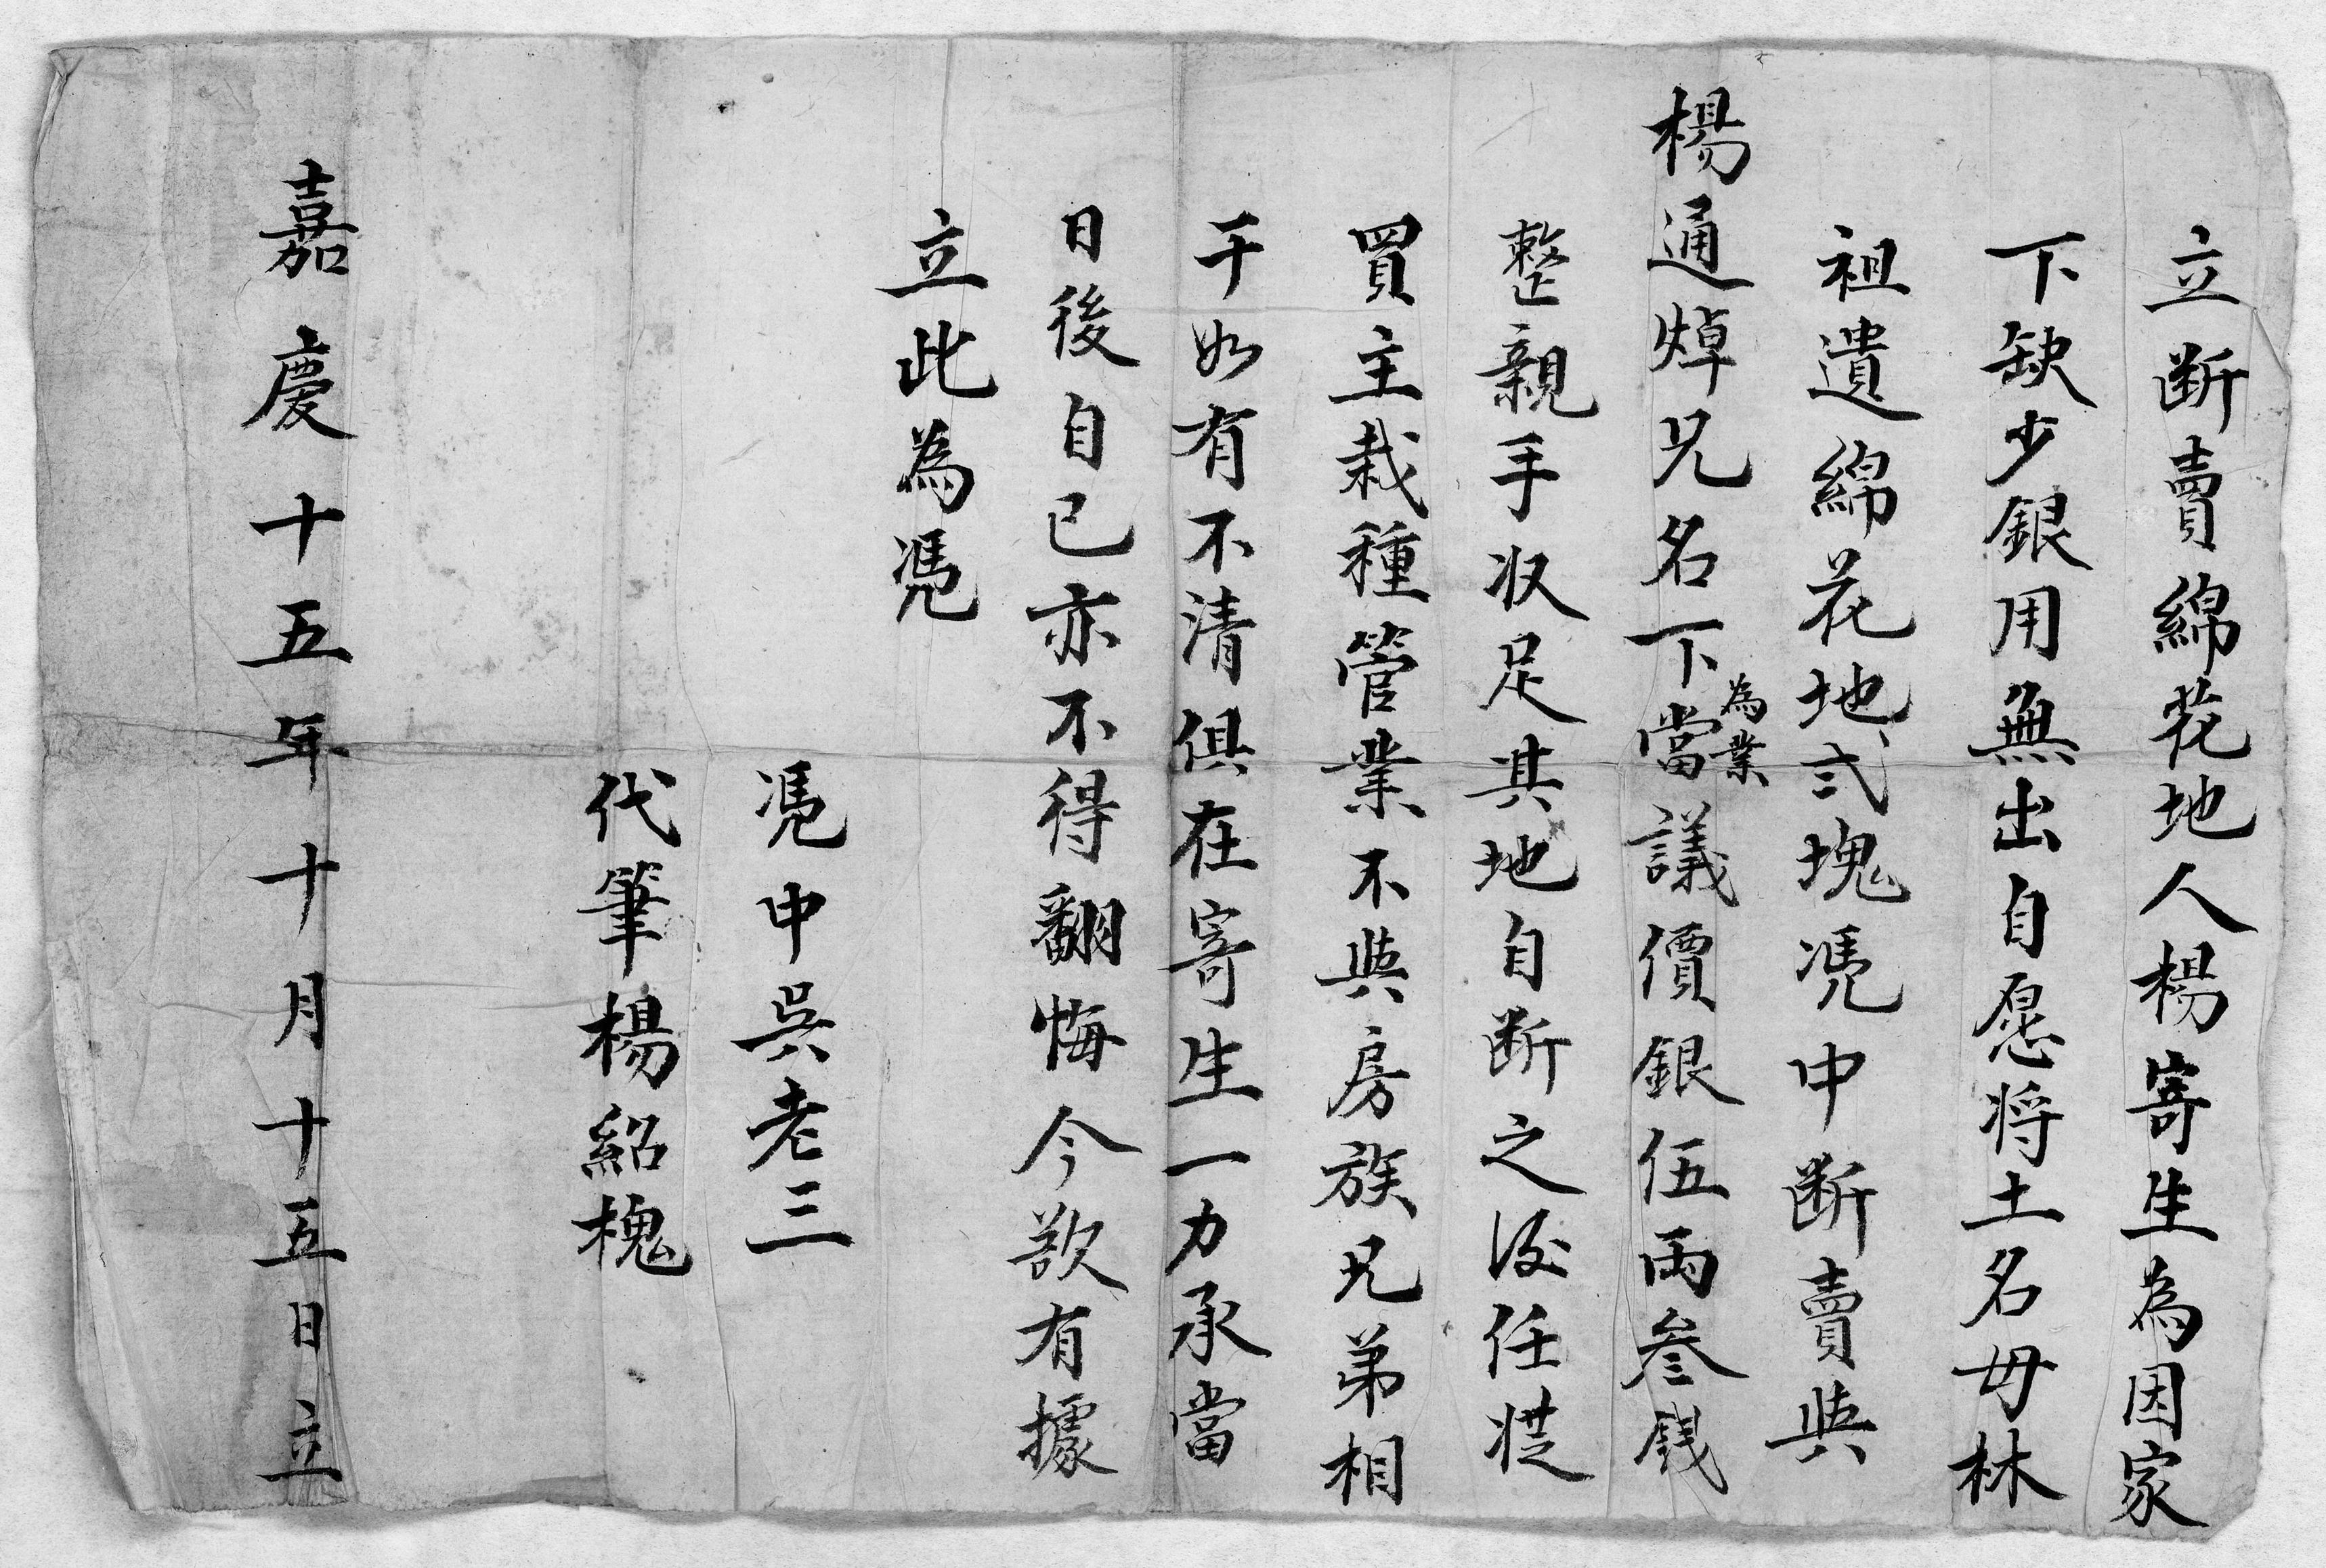 立断賣綿花地人楊寄生為因家
下缺少銀用無出自愿将土名毋林
祖遺綿花地弍塊凴中断賣與
楊通焯兄名下為業當議價銀伍両叁銭
整親手収足其地自断之後任從
買主栽種管業不與房族兄弟相
干如有不清俱在寄生一力承當
日後自已亦不得翻悔今欲有據
立此為凴
凴中吳老三
代筆楊紹槐
嘉慶十五年十月十五日立